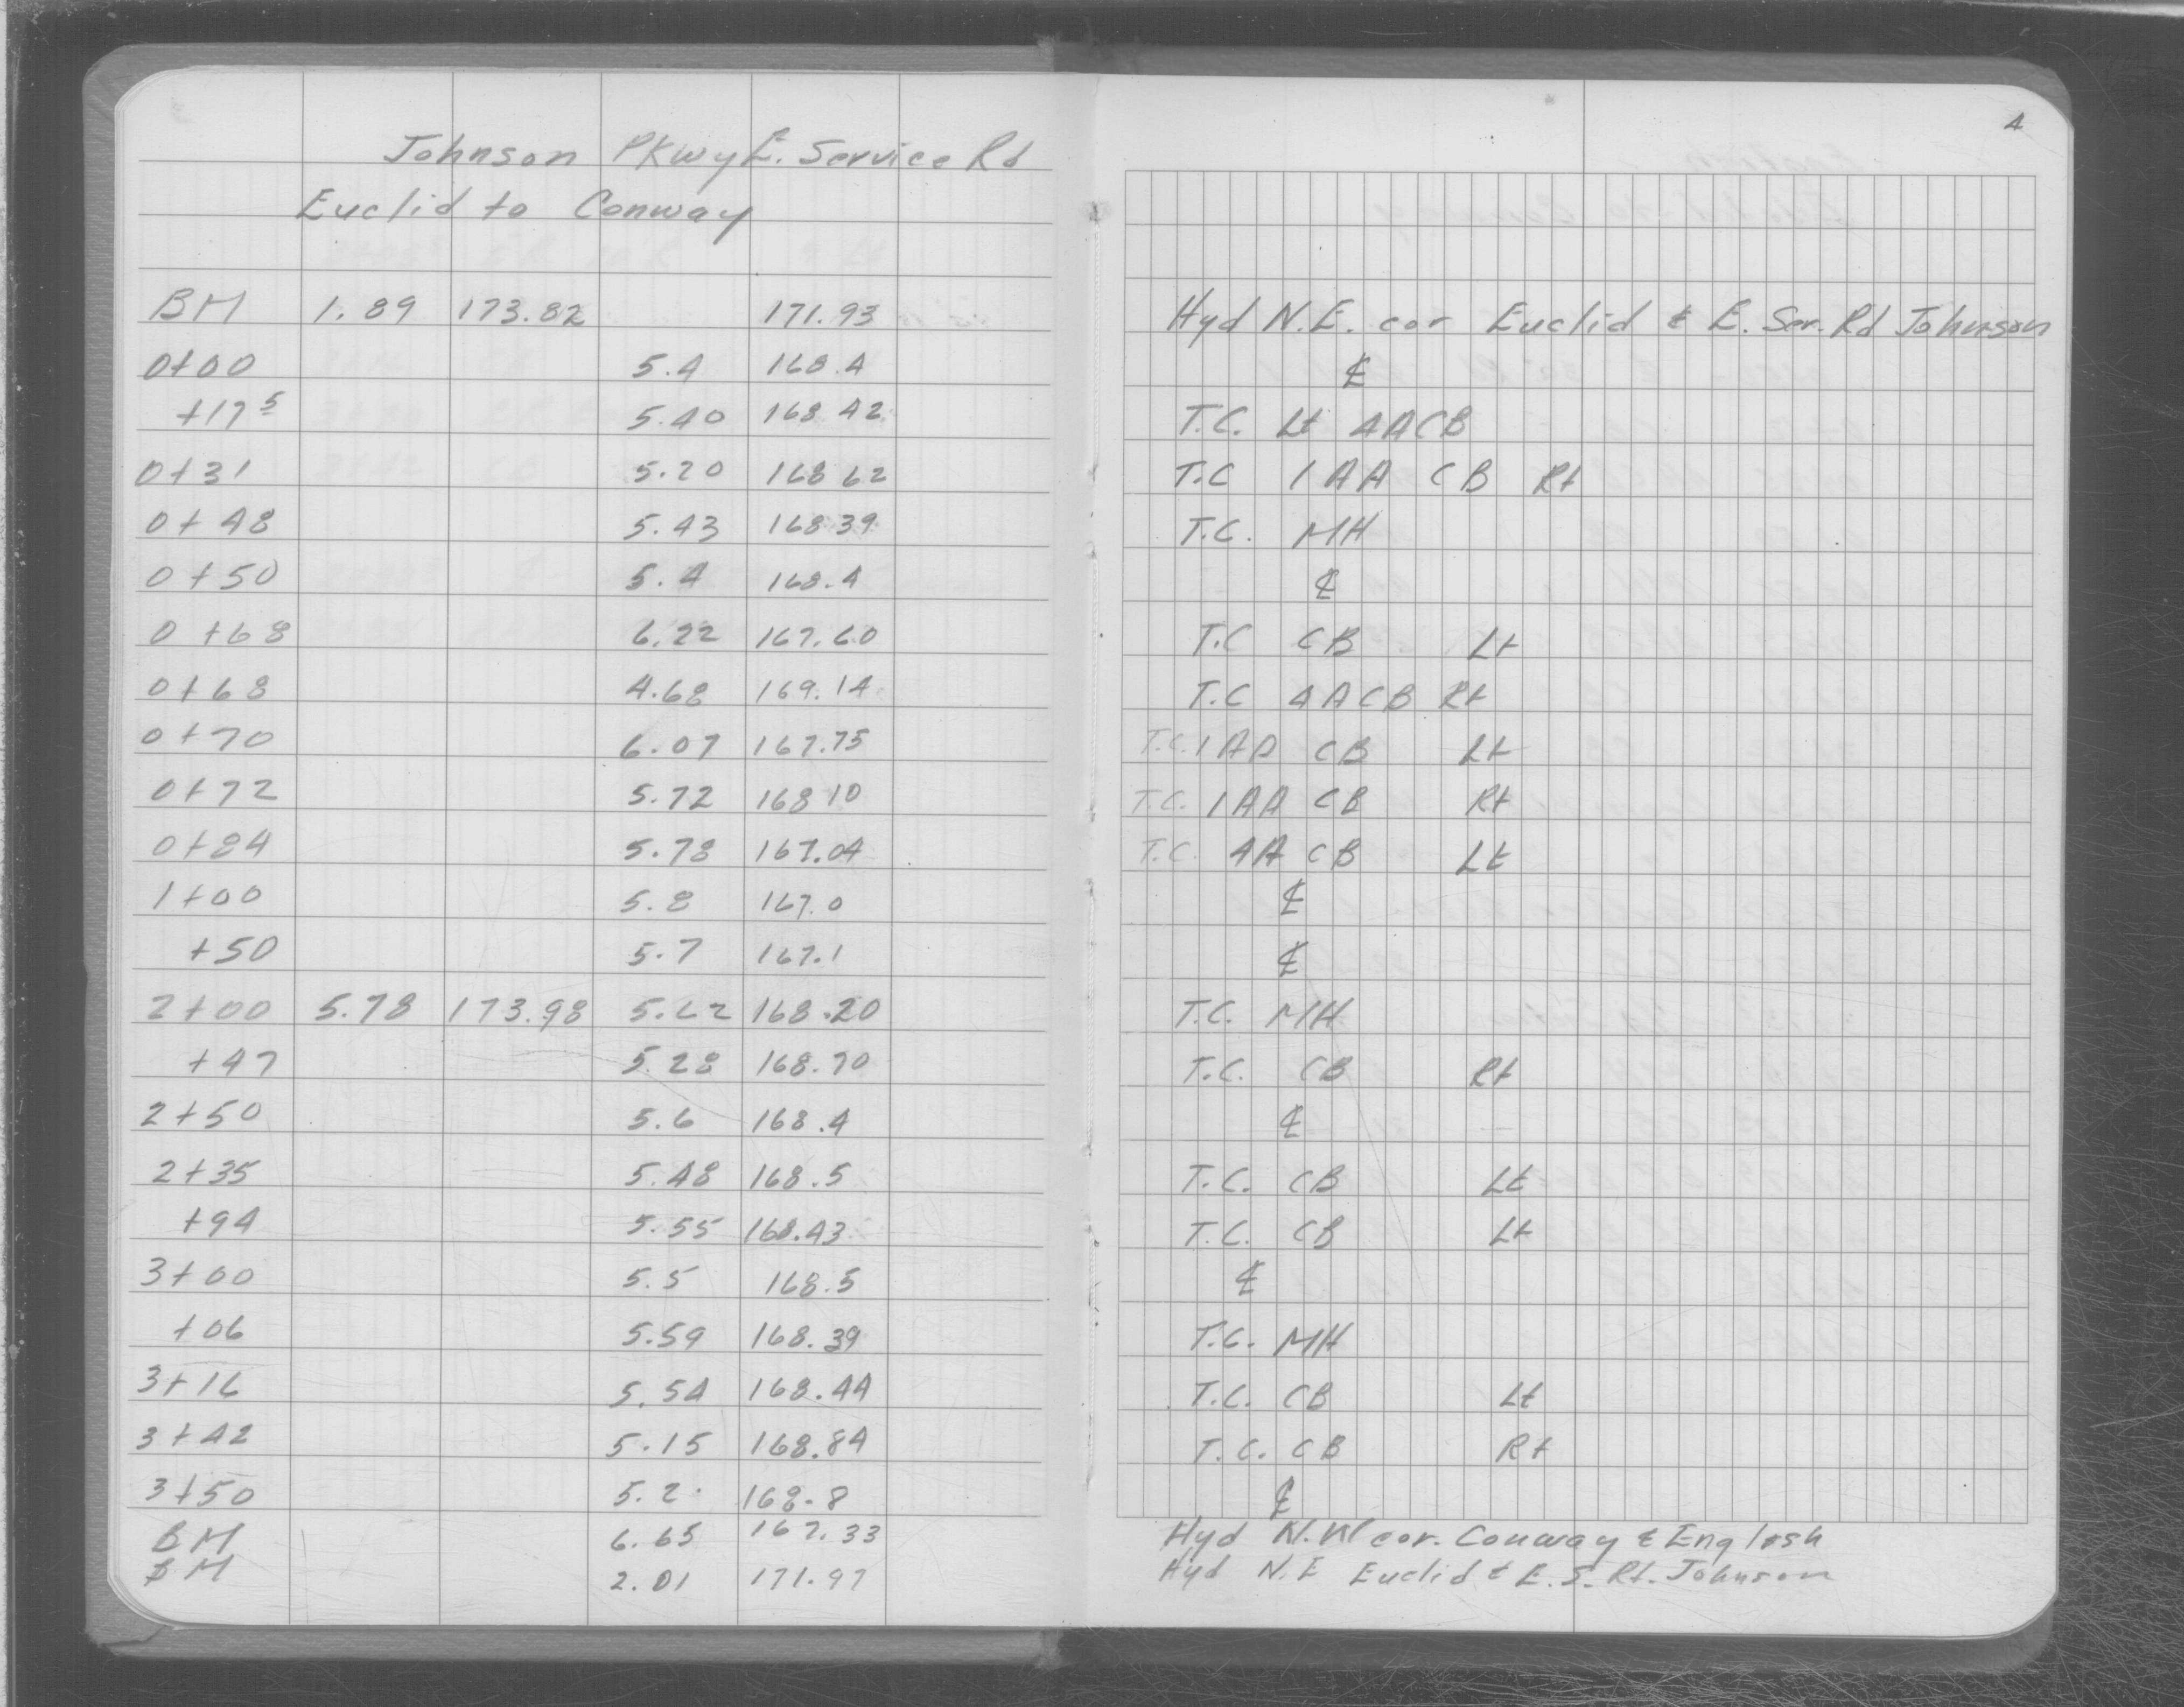 4
Johnson Pkwy E. Service Rd
Euclid to Conway
BM 1.89 173.82 171.93 Hyd N.E. cor Euclid & E. Ser. Rd Johnson
0+00 5.4 168.4 ℄
+17⁵ 5.40 168.42 T.C. Lt 4A CB
0+31 5.20 168.62 T.C 1AA CB Rt
0+48 5.43 168.39 T.C. MH
0+50 5.4 168.4 ℄
0+68 6.22 167.60 T.C CB Lt
0+68 4.68 169.14 T.C 4A CB Rt
0+70 6.07 167.75 T.C. 1AA CB Lt
0+72 5.72 168 10 T.C. 1AA CB Rt
0+84 5.78 167.04 T.C. 4A CB Lt
1+00 5.8 167.0 ℄
+50 5.7 167.1 ℄
2+00 5.78 173.98 5.62 168.20 T.C. MH
+47 5.28 168.70 T.C. CB Rt
2+50 5.6 168.4 ℄
2+35 5.48 168.5 T.C. CB Lt
+94 5.55 168.43 T.C. CB Lt
3+00 5.5 168.5 ℄
+06 5.59 168.39 T.C. MH
3+16 5.54 168.44 T.C. CB Lt
3+42 5.15 168.84 T.C. CB Rt
3+50 5.2 168.8 ℄
BM 6.65 167.33 Hyd N.W cor. Conway & English
BM 2.01 171.97 Hyd N.E Euclid & E. S. Rd. Johnson